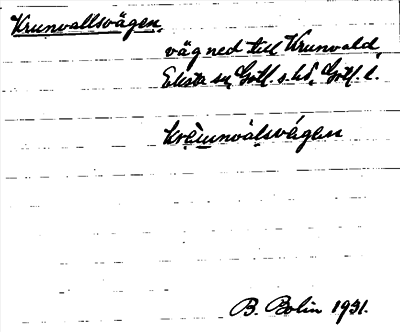 Krunvallsvägen,
väg ned till Krunvald,
Eksta sn, Gotl. s. hd, Gotl. l.
krèmnvàlsvägen
B. Bolin 1931.